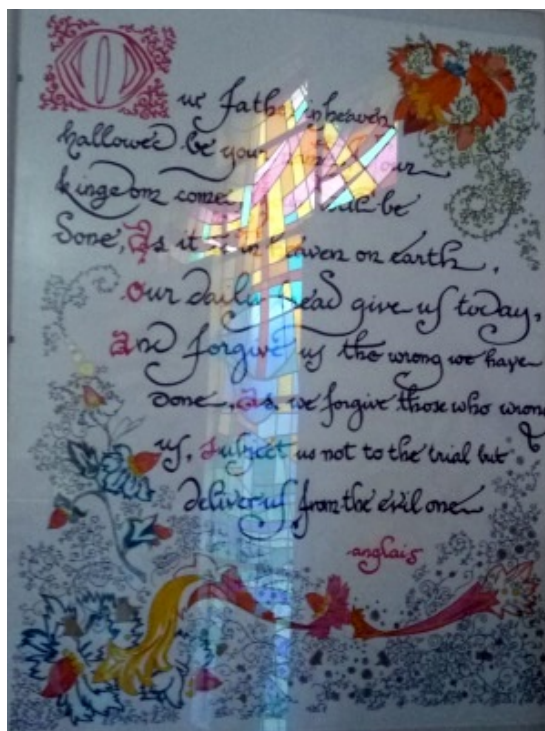 Our Father in heaven
hallowed be your our
kingdom come be
done, as it in heaven on earth,
our daily bead give us today,
and forgive us the wrong we have
done, as we forgive those who wrong
us, subject us not to the trial but
deliver us from the evil one
anglais